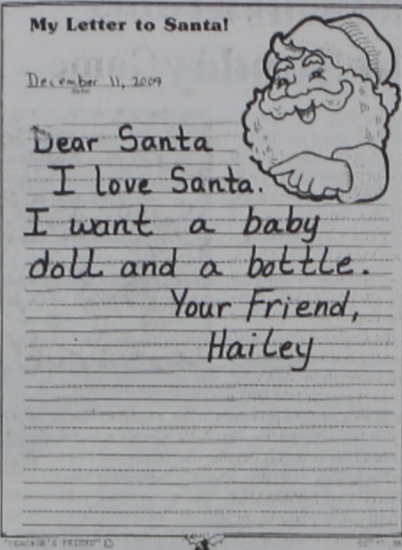 My Letter to Santa!
December 11, 2009
Dear Santa
I love Santa.
I want a baby
doll and a bottle.
Your Friend,
Hailey
"TEACHER'S FRIEND"©